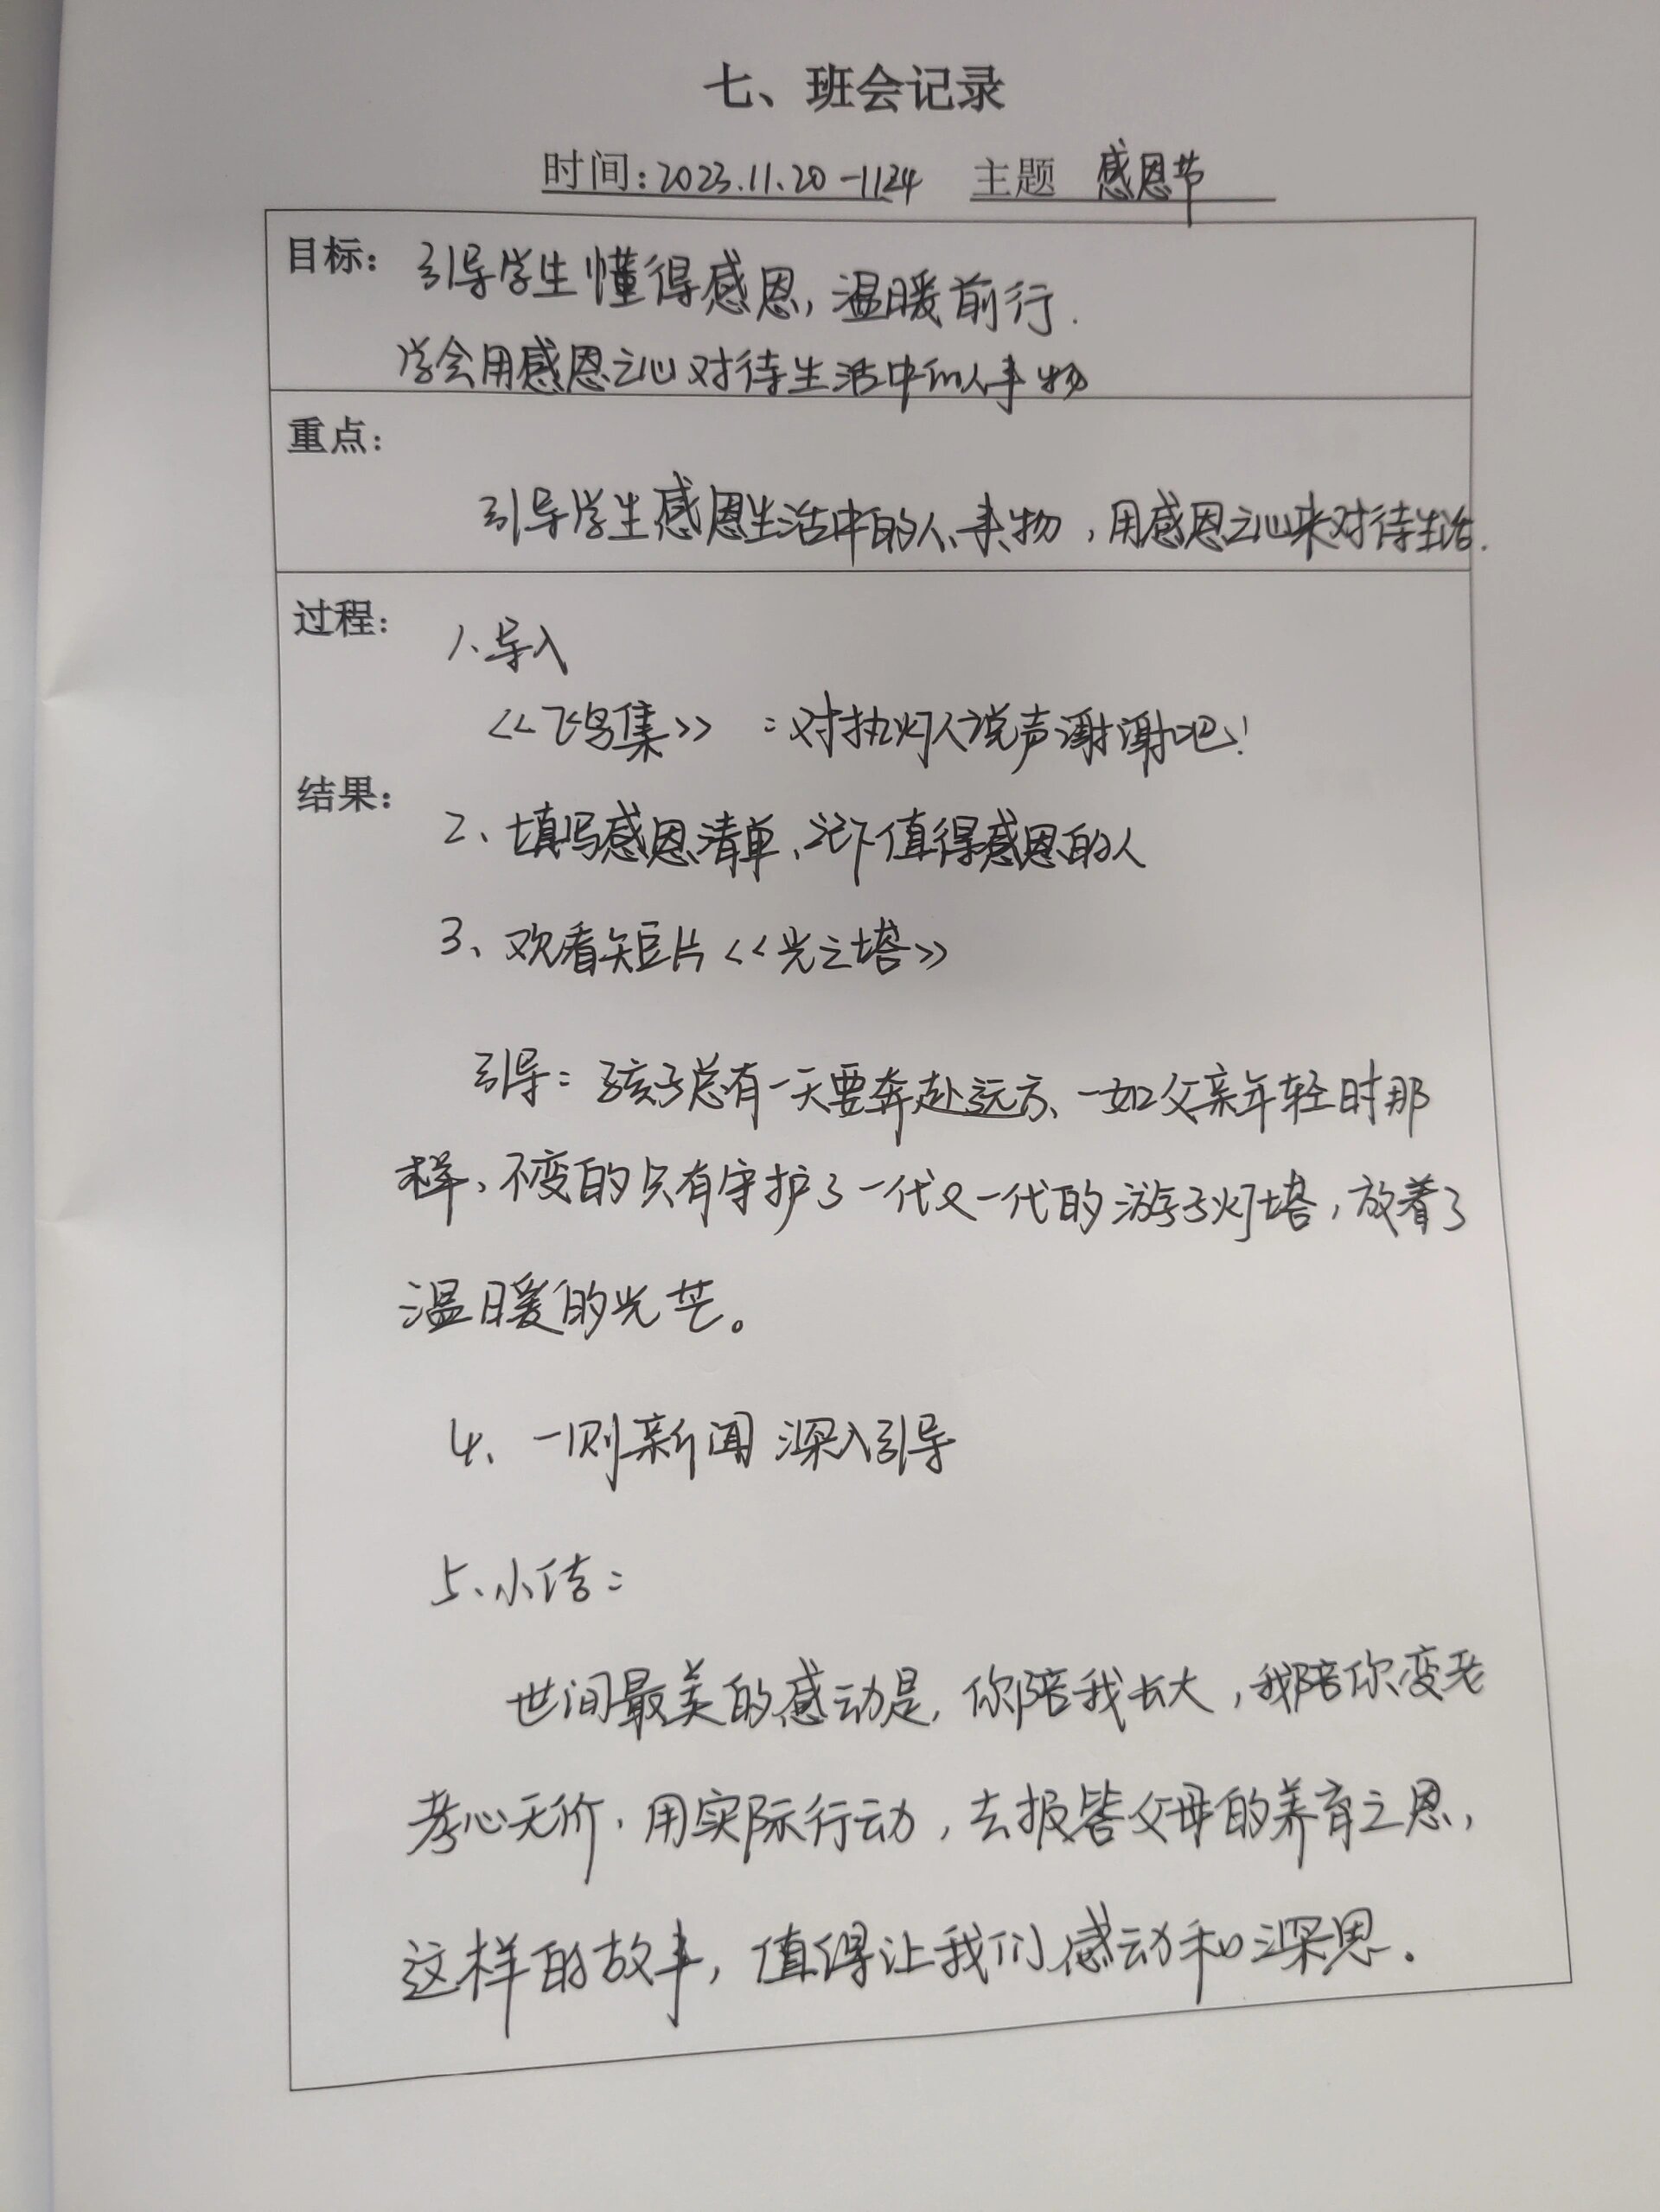 七、班会记录
时间：2023.11.20-1124 主题 感恩节
目标：引导学生懂得感恩，温暖前行.
学会用感恩之心对待生活中的人事物
重点：
引导学生感恩生活中的人、事、物，用感恩之心来对待生活.
过程：
1、导入
<<飞鸟集>>：对执灯人说声谢谢吧！
结果：
2、填写感恩清单、记下值得感恩的人
3、观看短片<<光之塔>>
引导：孩子总有一天要奔赴远方、一如父亲年轻时那
样、不变的只有守护了一代又一代的游子灯塔，放着了
温暖的光芒。
4、一则新闻 深入引导
5、小结：
世间最美的感动是，你陪我长大，我陪你变老
孝心无价，用实际行动，去报答父母的养育之恩，
这样的故事，值得让我们感动和深思.